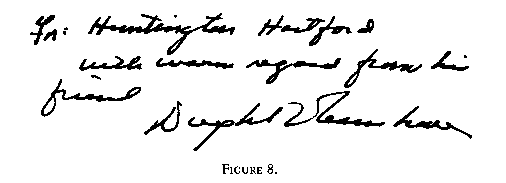 For: Huntington Hartford
with warm regard from his
friend
Dwight D Eisenhower
FIGURE 8.